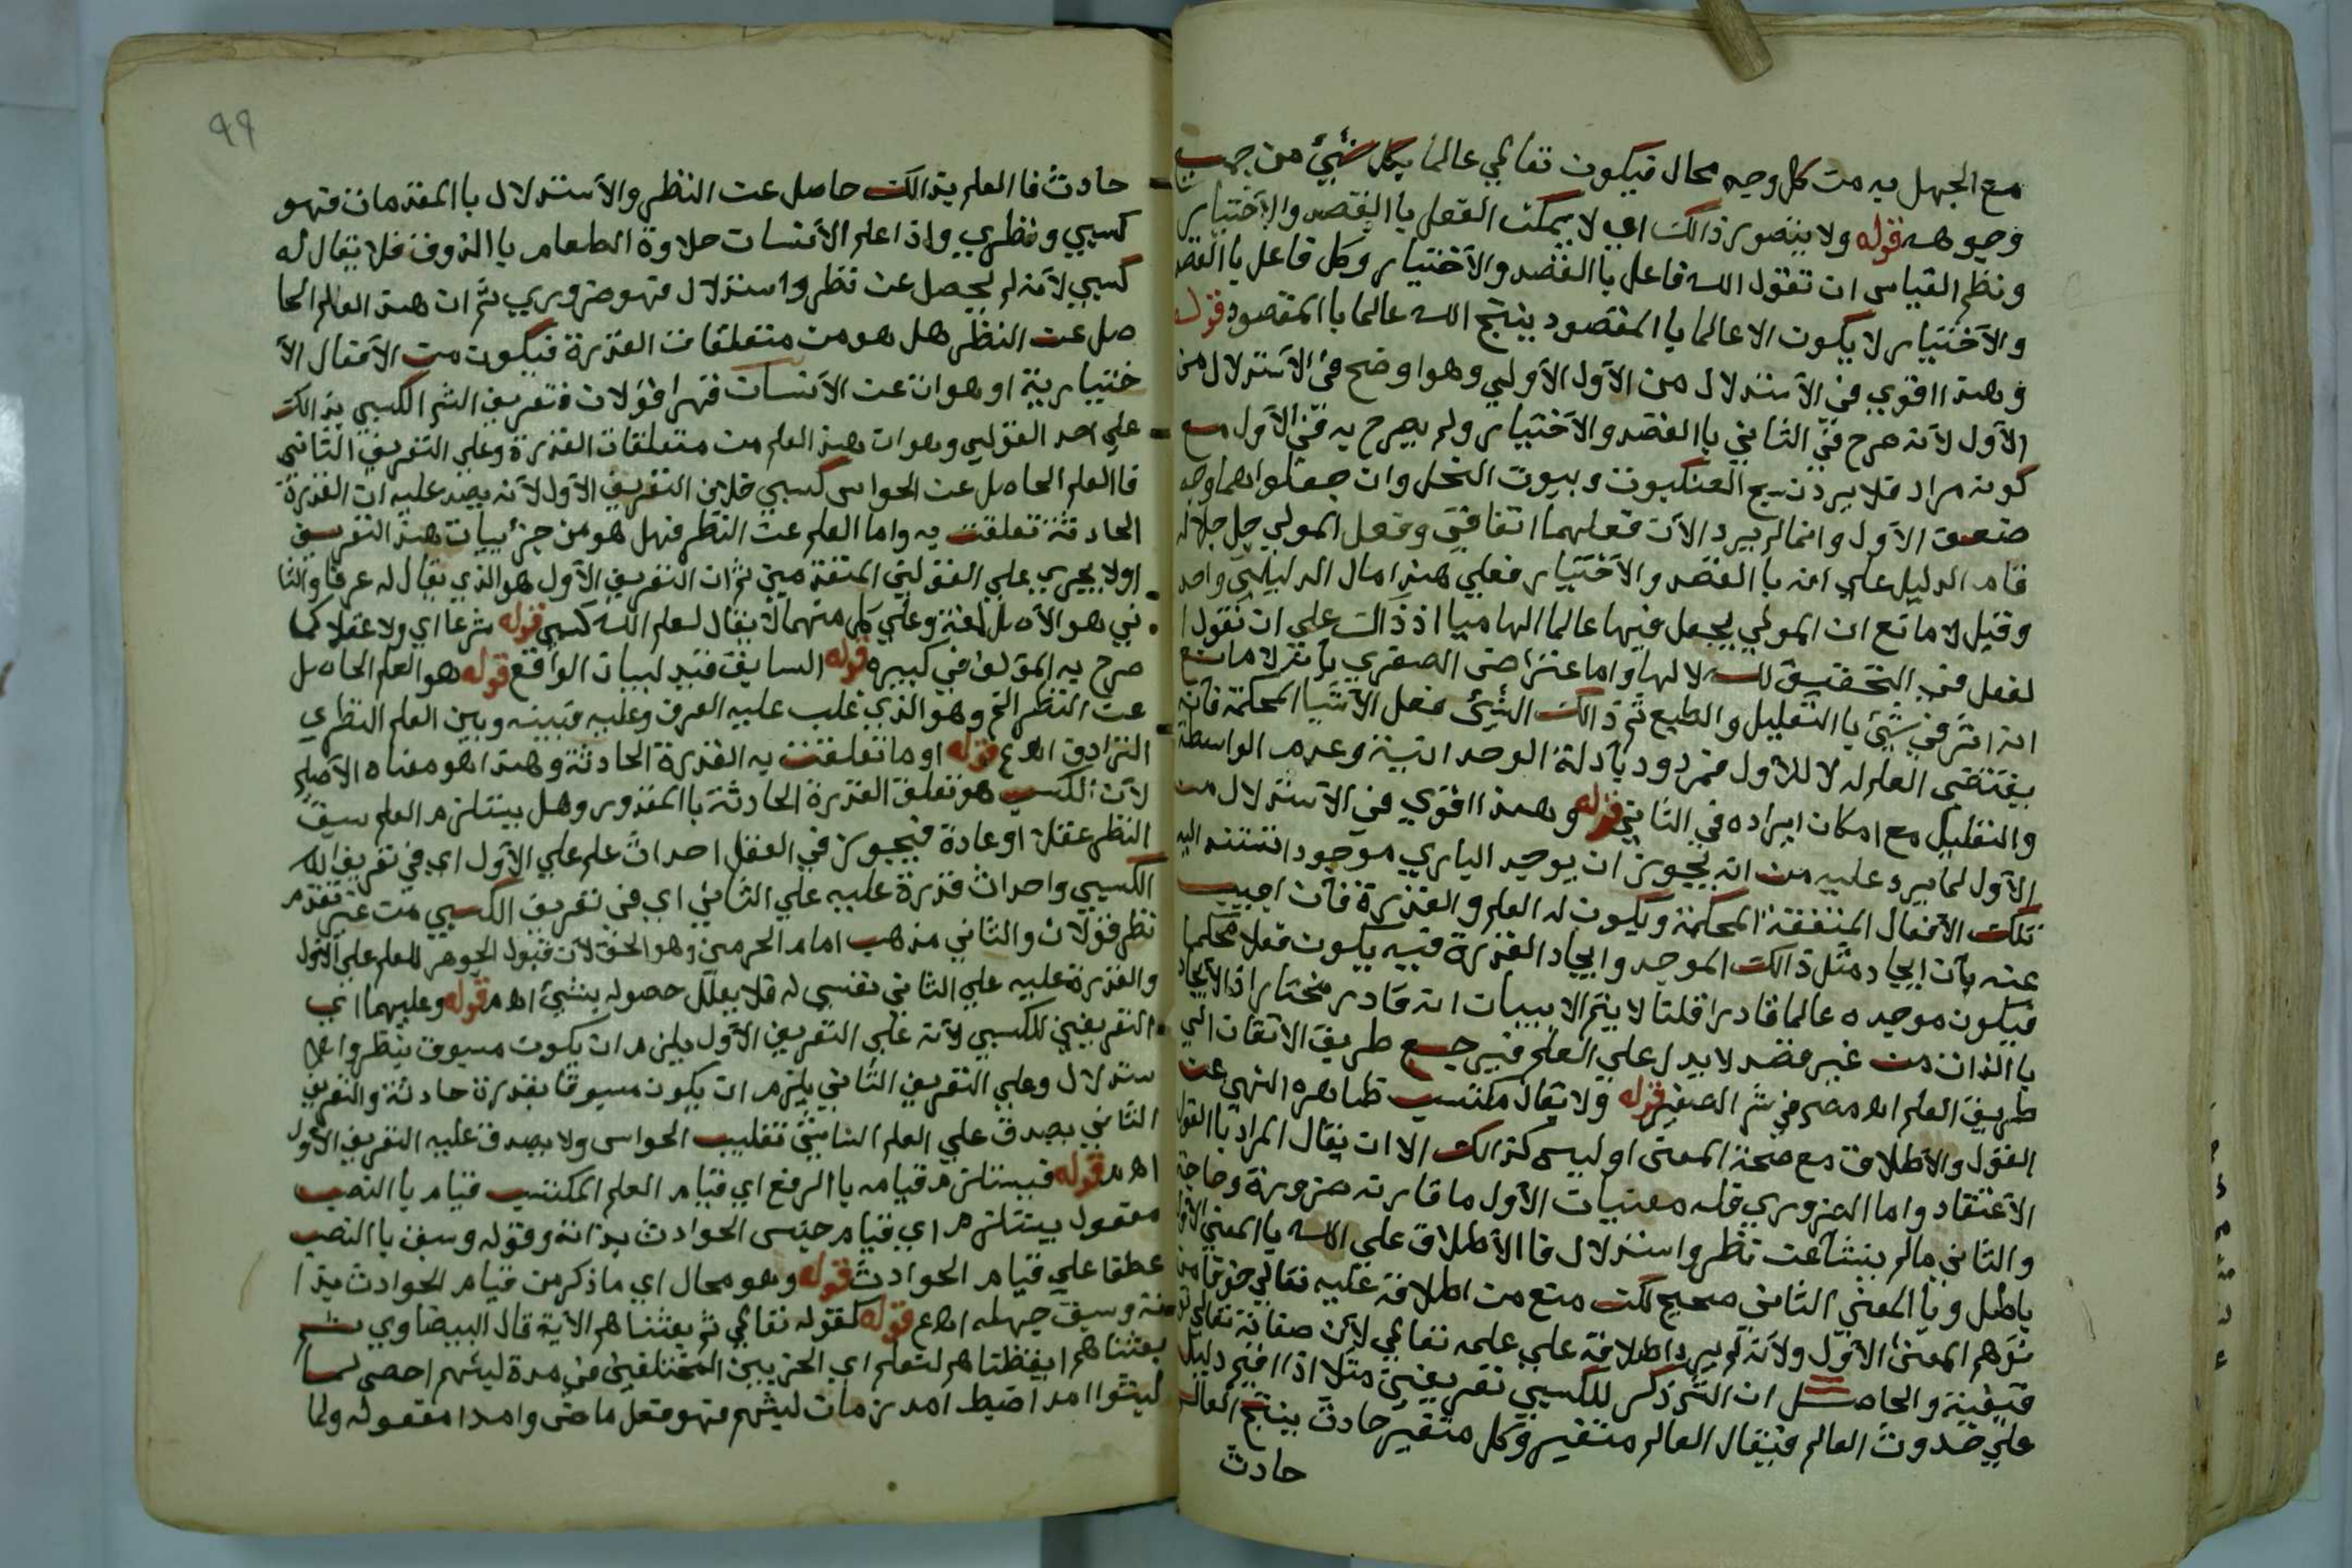 مع الجهل به من كل وجه محال فيكون تعالي عالما بكل شيئ من جميع
وجوهه قوله ولا يتصور ذالك اي لا يمكن الفعل باالقصد والاختيار
ونظم القياس ان تقول الله فاعل باالقصد والأختيار وكل فاعل باالقصد
والأختيار لا يكون الا عالما باالمقصود ينتج الله عالما باالمقصود قوله
وهذا اقوي في الأستدلال من الأول الأولي وهو اوضح في الأستدلال من
الأول لأنه صرح في الثاني باالقصد والأختيار ولم يصرح به في الأول مع
كونه مراد فلا يرد نسج العنكبوت وبيوت النحل وان جعلوا لهما وجه
ضعف الأول وانما لم يرد الأن فعلهما اتفاقي وفعل المولي جل جلاله
قام الدليل علي انه باالقصد والأختيار فعلي هذا مال الدليلين واحد
وقيل لا مانع ان المولي يجعل فيها عالما الهاميا اذ ذالك علي ان نقول ا
لفعل في التحقيق لله لا لها واما اعتراض الصغري بأنه لا مانع
انه اثر في شيئ باالتعليل والطبع ثم ذالك الشيئ فعل الأشيا المحكمة فأنه
يقتضي العلم له لا للأول فمردود بأدلة الوحدانية وعدم الواسطة
والتعليل مع امكان ايراده في الثاني قوله وهذا اقوي في الأستدلال من
الأول لما يرد عليه من انه يجوز ان يوجد الباري موجود اتستند اليه
تلك الأفعال المتقنة المحكمة ويكون له العلم والقدرة فأن اجيب
عنه بأن ايجاد مثل ذالك الموجد وايجاد القدرة فيه يكون فعلا محكما
فيكون موجده عالما قادرا قلنا لا يتم الا ببيان انه قادر مختار اذ الأيجاد
باالذات من غير قصد لا يدل علي العلم فيرجع طريق الاتقان الي
طريق العلم اه مصر في شر الصغير قوله ولا يقال مكتسب ظاهره النهي عن
القول والأطلاق مع صحة المعني او ليس كذالك الا ان يقال المراد باالقول
الأعتقاد واما الضروري فله معنيان الأول ما قارنه ضرورة وحاجة
والثاني مالم ينشأ عن نظر واستدلال فا الأطلاق علي الله باالمعني الأول
باطل وباالمعني الثاني صحيح لكن منع من اطلاقه عليه تعالي خوفا من
توهم المعني الأول ولأنه لم يرد اطلاقه علي علمه تعالي لأن صفاته تعالي تو
قيفية والحاصل ان الش ذكر للكسبي تعريفين مثلا اذا اقيم دليل
علي حدوث العالم فيقال العالم متغير وكل متغير حادث ينتج العالم
حادث
99
حادث فا العلم بذالك حاصل عن النظر والأستدلال باالمقدمات فهو
كسبي ونظري واذا علم الأنسان حلاوة الطعام باالذوق فلا يقال له
كسبي لأنه لم يحصل عن نظر واستدلال فهو ضروري ثم ان هذا العلم الحا
صل عن النظر هل هو من متعلقات القدرة فيكون من الأفعال الأ
ختيارية او هو ان عن الأنسان قهرا قولان فتعريف الش الكسبي بذالك
علي احد القولين وهو ان هذا العلم من متعلقات القدرة وعلي التعريف الثاني
فا العلم الحاصل عن الحواس كسبي خلاف التعريف الأول لأنه يصدق عليه ان القدرة
الحادثة تعلقت به واما العلم عن النظر فهل هو من جزئيات هذا التعريف
اولا يجري علي القولين المتقدمين ثم ان التعريف الأول هو الذي يقال له عرفا والثا
ني هو الأصل لغة وعلي كل منهما لا يقال لعلم الله كسبي قوله شرعا اي ولا عقلا كما
صرح به المؤلف في كبيره قوله السابق قيد لبيان الواقع قوله هو العلم الحاصل
عن النظر الخ وهو الذي غلب عليه العرف وعليه فبينه وبين العلم النظري
الترادف اه ع قوله او ما تعلقت به القدرة الحادثة وهذا هو معناه الأصلي
لأن الكسب هو تعلق القدرة الحادثة باالمقدور وهل يستلزم العلم سبق
النظر عقلا او عادة فيجوز في العقل احداث علم علي الأول اي في تعريف الله
الكسبي واحداث قدرة عليه علي الثاني اي في تعريف الكسبي من غير تقدم
نظر قولان والثاني مذهب امام الحرمين وهو الحق لأن قبول الجوهر للعلم علي الأول
والقدرة عليه علي الثاني نفسي له فلا يعلل حصوله بشيئ اه م قوله وعليهما اي
التعريفين للكسبي لأنه علي التعريف الأول يلزم ان يكون مسبوق بنظر وا
ستدلال وعلي التعريف الثاني يلزم ان يكون مسبوقا بقدرة حادثة والتعريف
الثاني يصدق علي العلم الناشئ تقليب الحواس ولا يصدق عليه التعريف الأول
اه م قوله فيستلزم قيامه باالرفع اي قيام العلم المكتسب قيام باالنصب
مفعول يستلزم اي قيام جنس الحوادث بذاته وقوله وسبق باالنصب
عطفا علي قيام الحوادث قوله وهو محال اي ما ذكر من قيام الحوادث بذا
ته وسبق جهله اه ع قوله كقوله تعالي ثم بعثناهم الأية قال البيضاوي ثم
بعثناهم ايقظناهم لنعلم اي الحزبين المختلفين في مدة لبثهم احصي لما
لبثوا امدا ضبط امد زمان لبثهم فهو فعل ماضي وامدا مفعوله ولما